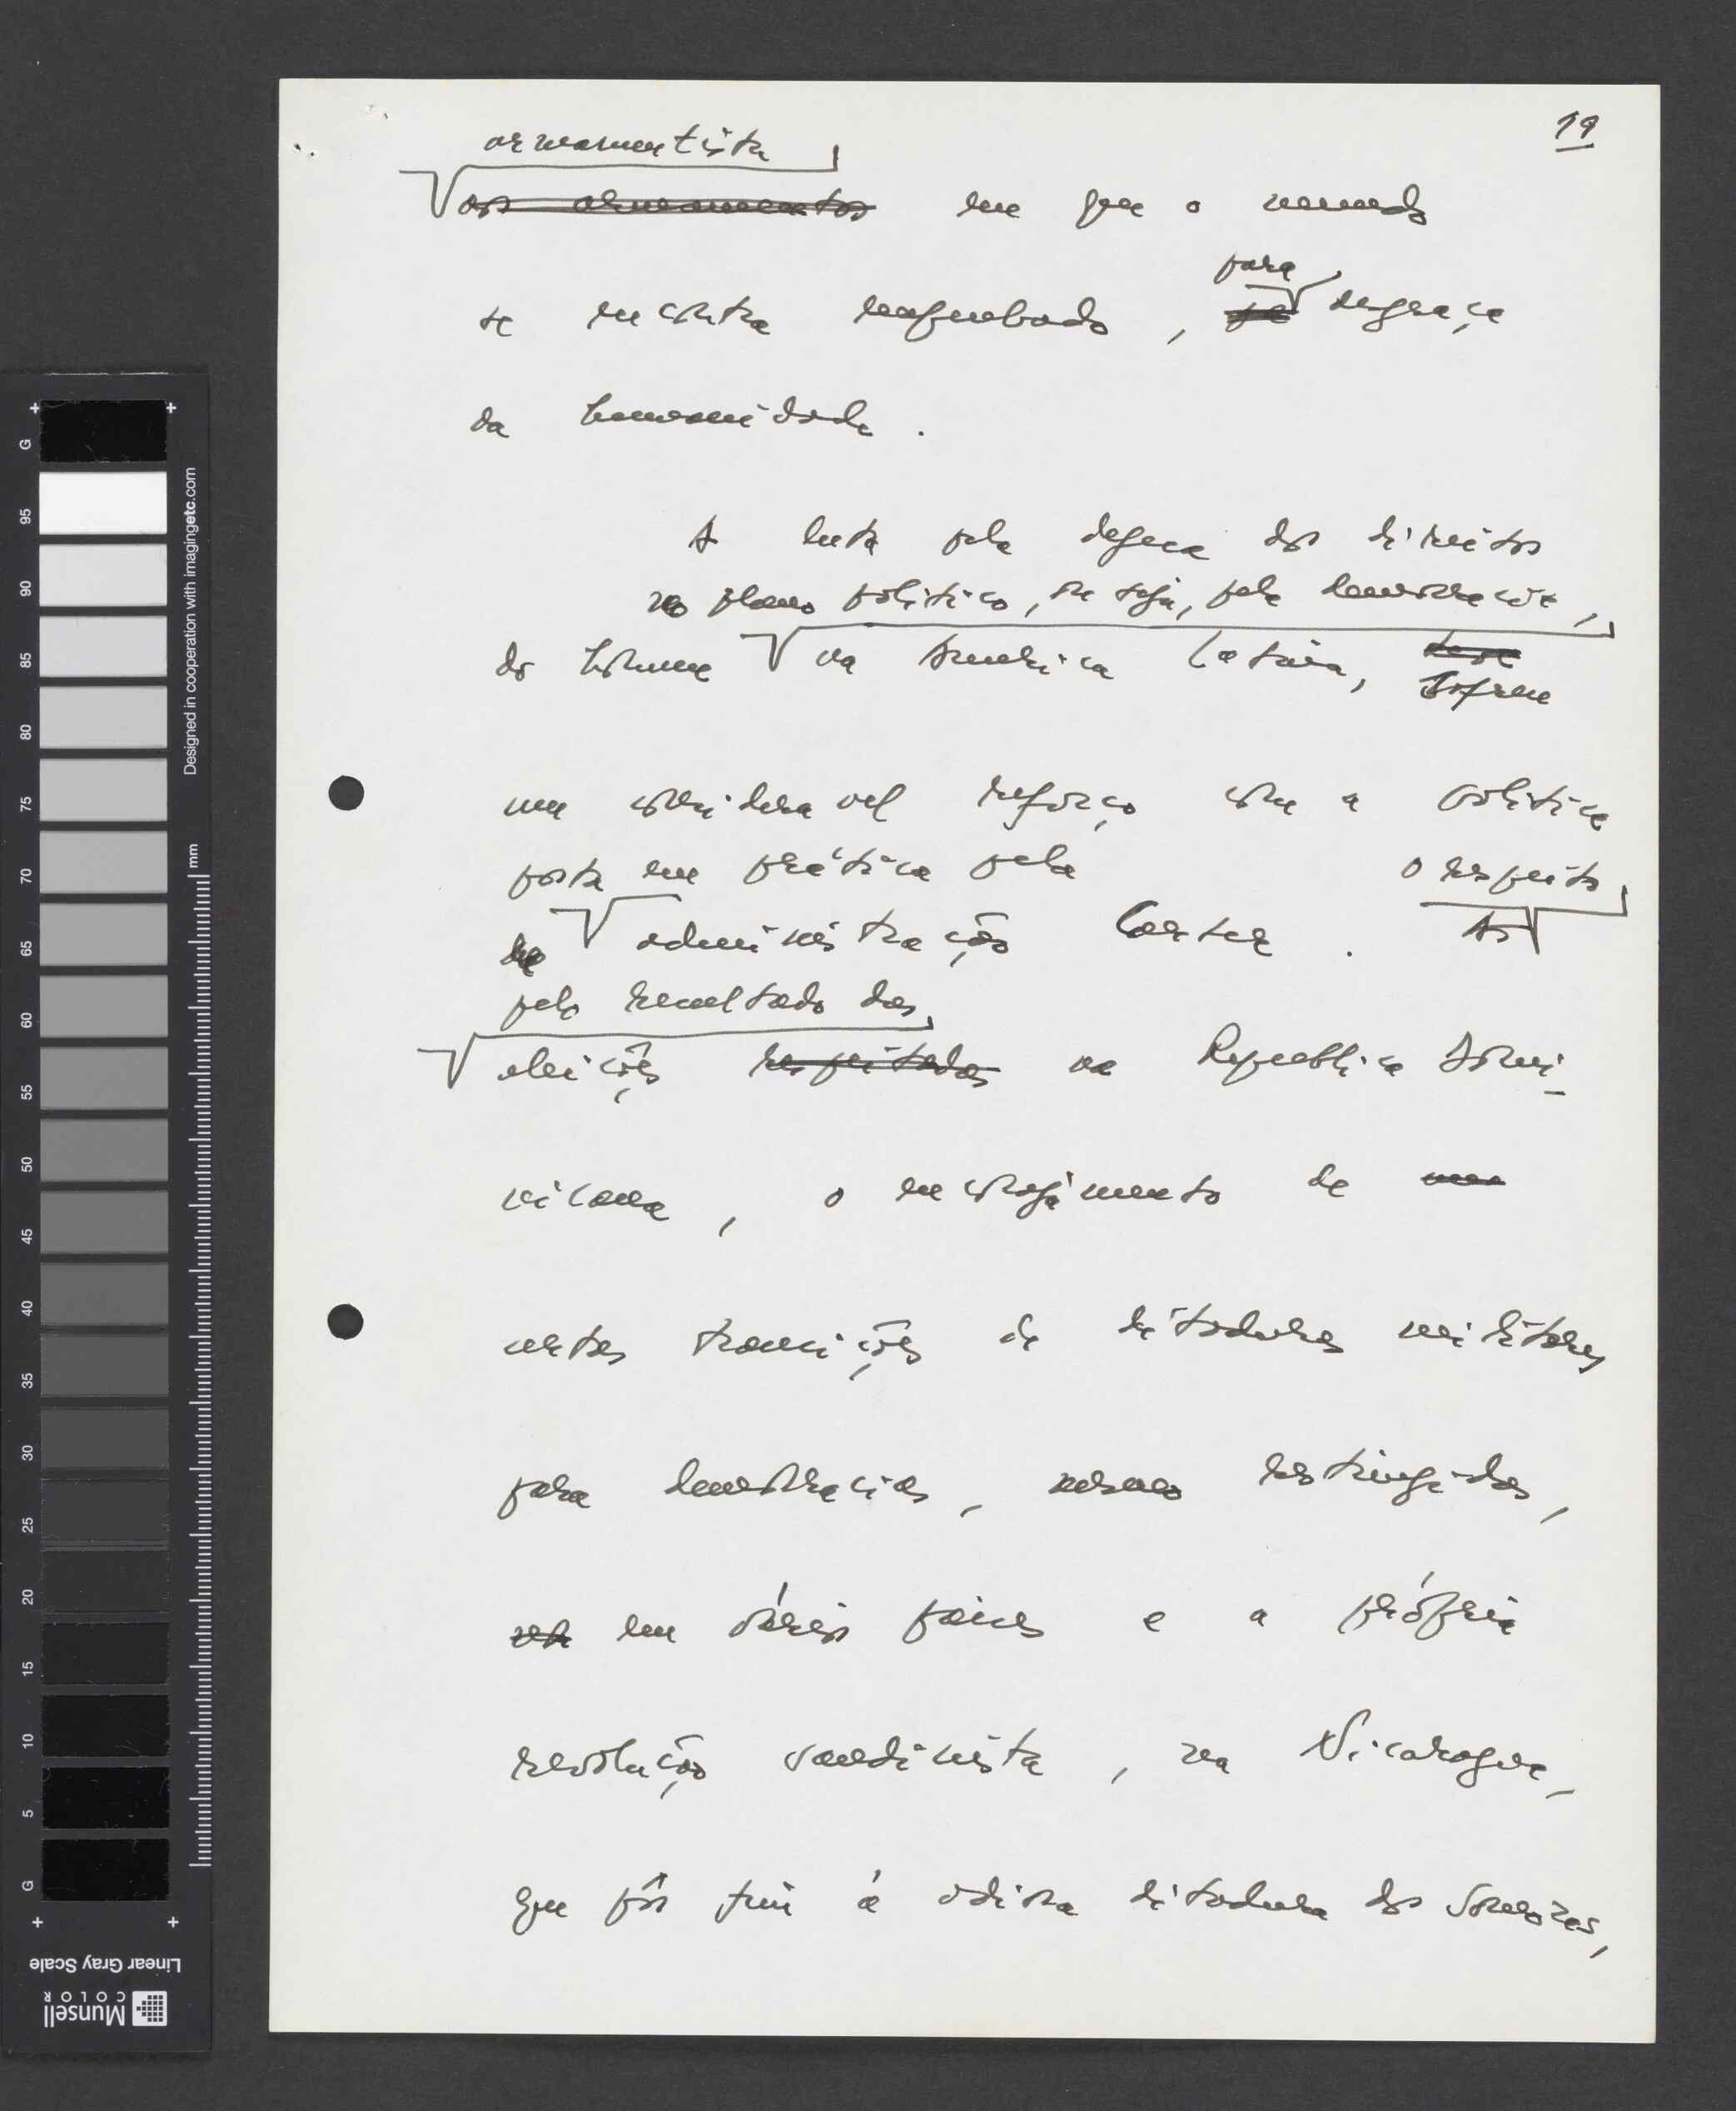 19
armamentista
aos armamentos em que o mundo
para
se encontra mergulhado, desgraça
da humanidade.
A luta pela defesa dos direitos
no plano político, ou seja, pela democracia,
do homem na America Latina, teve
um consideravel reforço com a politica
posta em prática pela o respeito
da administração Carter. As
pelo resultado das
eleições respeitadas na Republica Domi-
nicana, o encorajamento de uma
certas transições de ditaduras militares
para democracias, mesmo restringidas,
em vários países e a própria
revolução sandinista, na Nicaragua,
que pôs fim á odiosa ditadura dos Somozas,
G 95 90 85 80 75 70 65 60 55 50 45 40 35 30 25 20 15 10 5 G
mm
Designed in cooperation with imagingetc.com
Linear Gray Scale
Munsell
COLOR